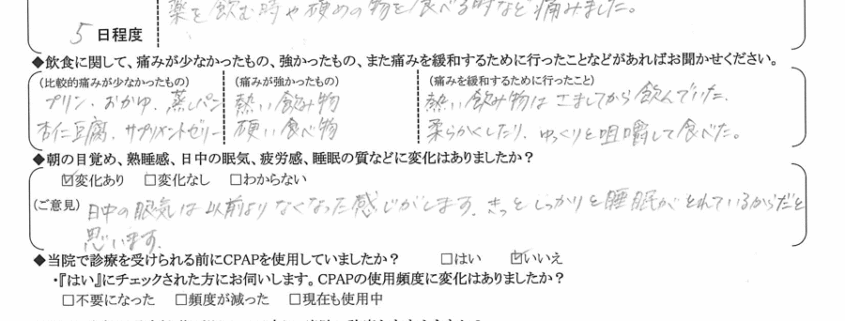 薬を飲む時や硬めの物を食べる時など痛みました。
5 日程度
◆飲食に関して、痛みが少なかったもの、強かったもの、また痛みを緩和するために行ったことなどがあればお聞かせください。
(比較的痛みが少なかったもの) (痛みが強かったもの) (痛みを緩和するために行ったこと)
プリン、おかゆ、蒸しパン 熱い飲み物 熱い飲み物はさましてから飲んでいた。
杏仁豆腐、サプリメントゼリー 硬い食べ物 柔らかくしたり、ゆっくりと咀嚼して食べた。
◆朝の目覚め、熟睡感、日中の眠気、疲労感、睡眠の質などに変化はありましたか?
☑変化あり □変化なし □わからない
(ご意見) 日中の眠気は以前よりなくなった感じがします。きっとしっかりと睡眠がとれているからだと
思います。
◆当院で診療を受けられる前にCPAPを使用していましたか? □はい ☑いいえ
・『はい』にチェックされた方にお伺いします。CPAPの使用頻度に変化はありましたか?
□不要になった □頻度が減った □現在も使用中